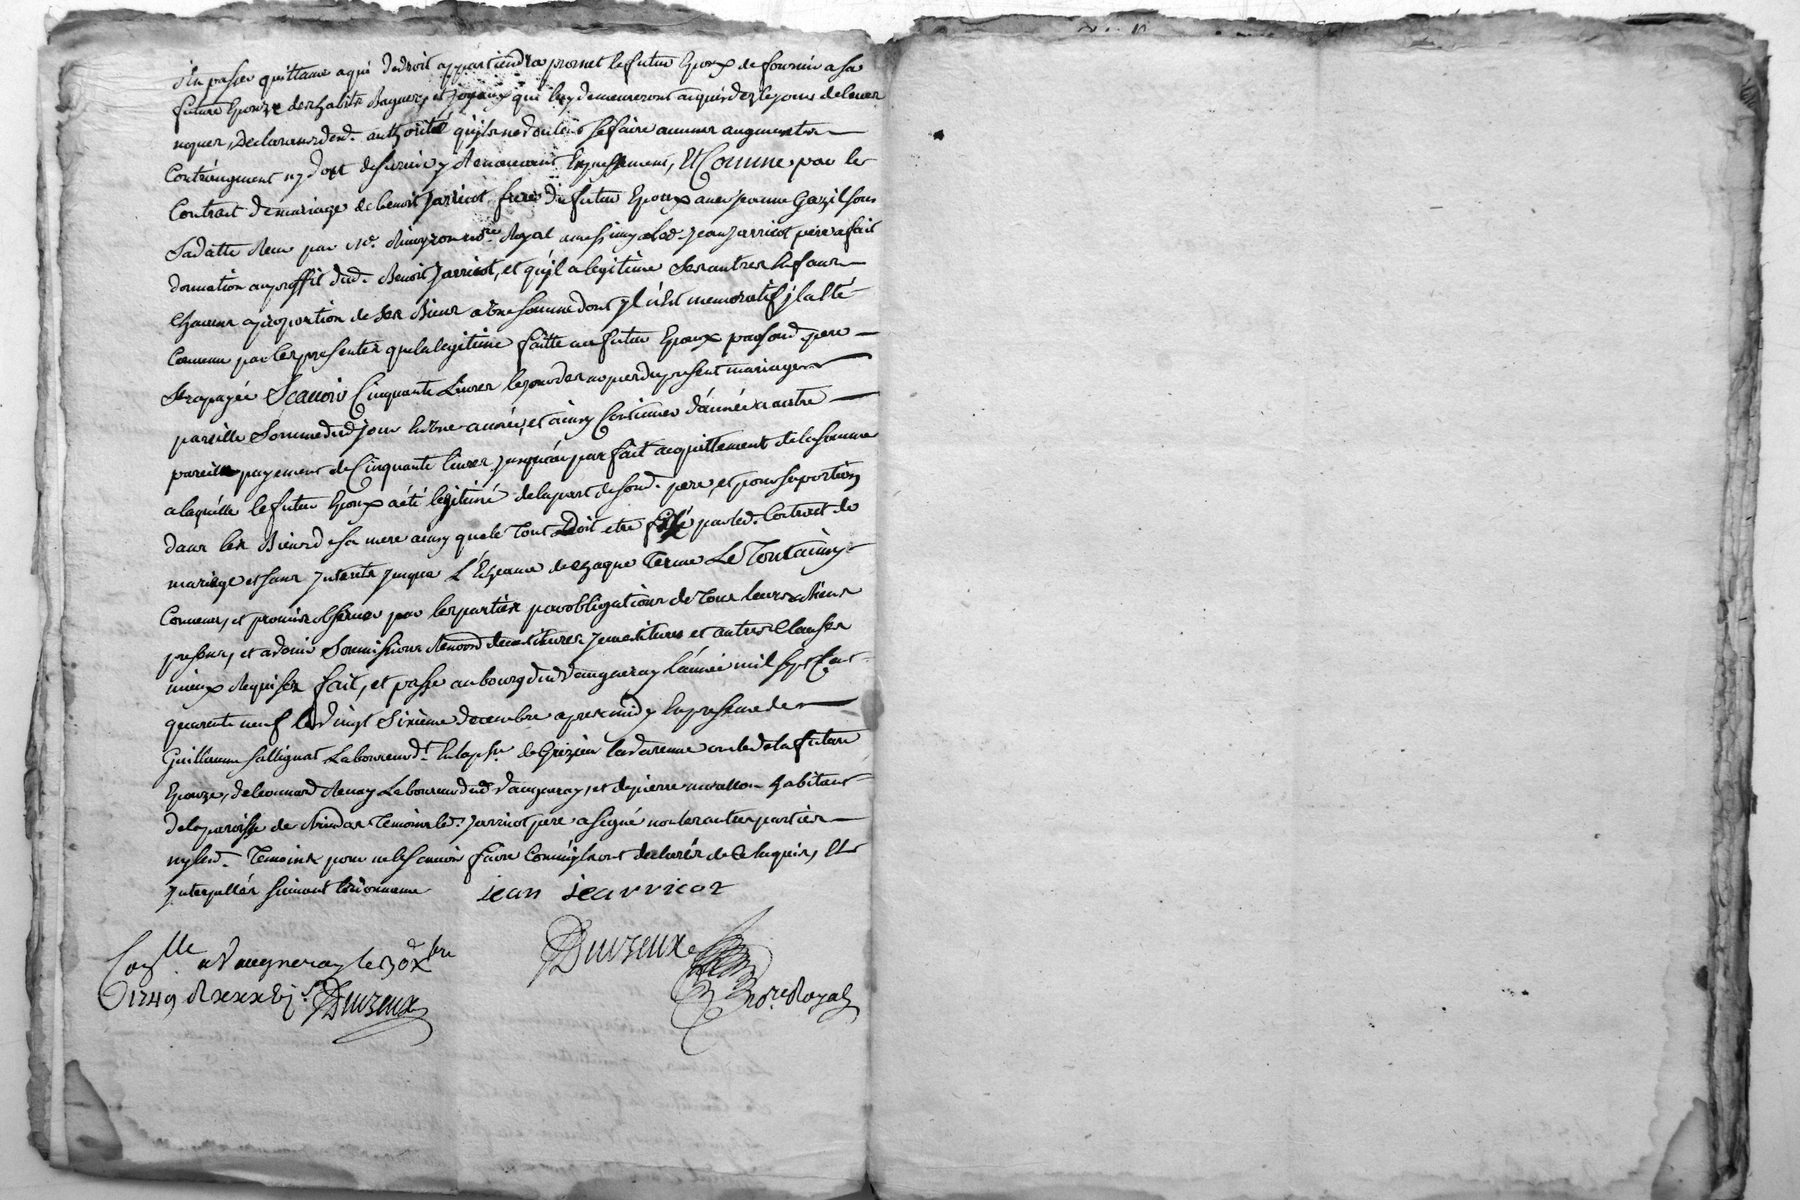 d'En passer quittance a qui de droit appartiendra promet le futur Epoux de fournir a sa
future Epouze des habits Bagues et joyaux qui luy demeureront acquis dez le jour de leurs
noques, declarans lesd. authorité qu'ils ne veulent se faire aucuns augments
Contréngment ny dont de survie y Renoncant Expressément, Et Comme par le
Contrat de mariage de benoit Jarricot frere du futur Epoux avec jeanne Gazil sous
Sa datte Receu par Me. Rimoyron nore. Royal a messimy led. Jean Jarricot pere a fait
donnation au proffit dud. Benoit Jarricot, et qu'jl a legitimé ses autres Enfans
Chacuns a proportion de ses Biens a une somme dont jl n'est memoratif jl a Eté
Convenu par les presentes que la legitime faitte au futur Epoux par sond. pere
Sera payée Scavoir Cinquante Livres le jour des noques du present mariage
pareille Somme dud jour En Une année, et ainsy Continuer d'année a autre
pareils payement de Cinquante livres jusqu'au parfait acquittement de la somme
a laquelle le futur Epoux a été legitimé de la part de sond. pere, et pour sa portion
dans les Biens de sa mere ainsy que le Tout doit etre fixé par led. Contract de
mariage et sans jnterets jusqua L'Echeance de chaque Terme Le Tout ainsy
Convenu, et promis observer par les parties par obligations de Tous leurs Biens
presens, et avenir Soumissions Renoond
mieux Requises fait, et passé au bourg dud Vaugneray l'année mil sept Cent
quarante neuf le Vingt Sixieme decembre apres midy En presence de
Guillaume Sallignat Laboureur dt. En la psse. de Grizieu lavarenne oncle de la future
Epouze, de leonnard Renay Laboureur dud Vaugneray, et de pierre habitant
de la paroisse de Brindas Temoins led. Jarricot pere a signé non les autres parties
ny led. Temoins pour ne le scavoir faire Comm'jls ont declarés de Ce Enquis, Et
jnterpellés suivant l'ordonnance jean jearricot
Duvreux
nore. Royal
Conlle a Vaugneray le 30 Xbre
1749 R
Duvreux